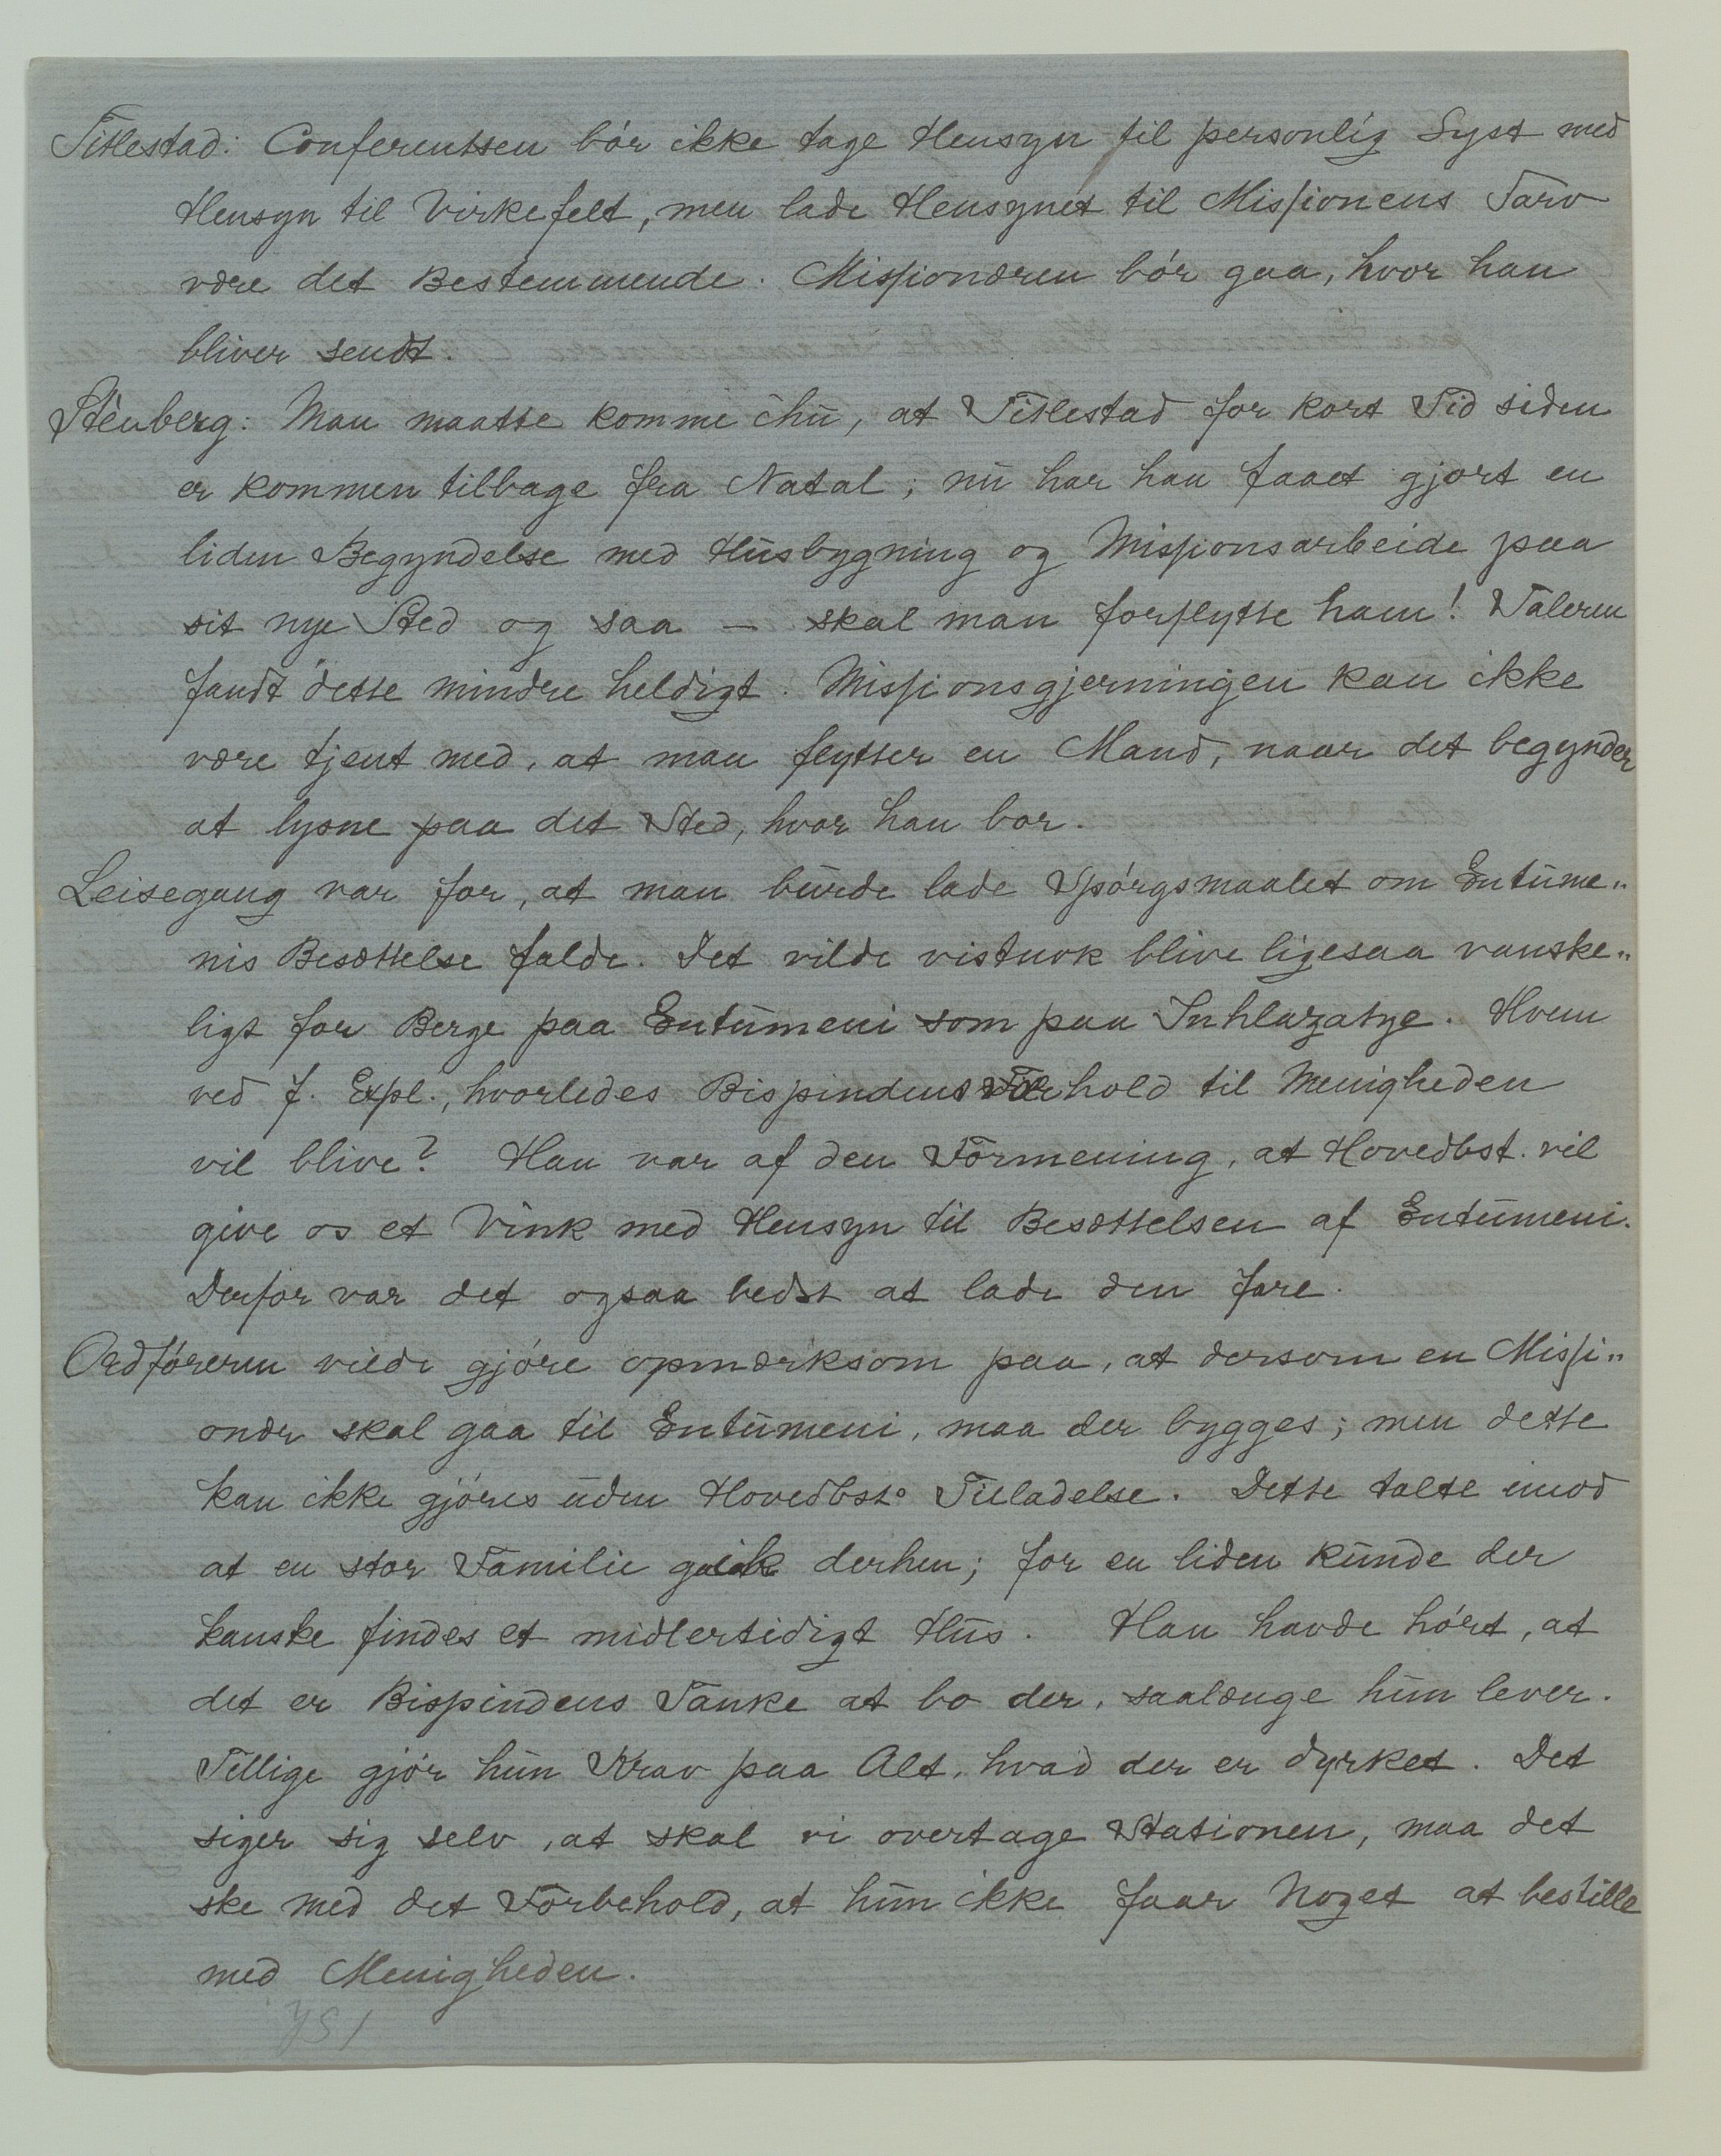 Titlestad: Conferentsen bór ikke tage Hensyn til personlig Lyst med
Hensyn til Virkefelt, men lade Hensynet til Missionens Tarv
være det Bestemmende. Missionæren bór gaa, hvor han
bliver sendt.
Stenberg: Man maatte komme ihu, at Titlestad for kort Tid siden
er kommen tilbage fra Natal; nu har han faaet gjort en
liden Begyndelse med Husbygning og Missionsarbeide paa
sit nye Sted og saa – skal man forflytte ham! Taleren
fandt dette mindre heldigt. Missionsgjerningen kan ikke
være tjent med, at man flytter en Mand, naar det begynder
at lysne paa det Sted, hvor han bor.
Leisegang var for, at man burde lade Spórgsmaalet om Entume„
nis Besættelse falde. Det vilde vistnok blive ligesaa vanske„
ligt for Berge paa Entumeni som paa Inhlazatye. Hvem
ved f. Expl., hvorledes Bispindens Forhold til Menigheden
vil blive? Han var af den Formening, at Hovedbst. vil
give os et Vink med Hensyn til Besættelsen af Entumeni.
Derfor var det ogsaa bedst at lade den fare.
Ordfóreren vilde gjóre opmærksom paa, at dersom en Missi„
onær skal gaa til Entumeni, maa der bygges; men dette
kan ikke gjóres uden Hovedbsts Tilladelse. Dette talte imod
at en stor Familie gik derhen; for en liden kunde der
kanske findes et midlertidigt Hus. Han havde hórt, at
det er Bispindens Tanke at bo der, saalænge hun lever.
Tillige gjór hun Krav paa Alt, hvad der er dyrket. Det
siger sig selv, at skal vi overtage Stationen, maa det
ske med det Forbehold, at hun ikke faar Noget at bestille
med Menigheden.